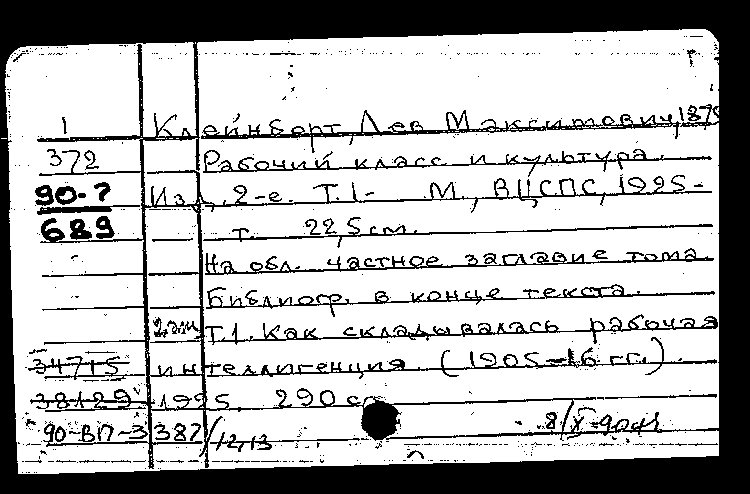 1 Клейнборт, Лев Максимович, 1875
372 Рабочий класс и культура.
90-7 Изд. 2-е. Т.1- М., ВЦСПС, 1925-
689 т. 22,5 см.
На обл. частное заглавие тома.
Библиогр. в конце текста.
2 экз. Т.1. Как складывалась рабочая
34715 интеллигенция. (1905-16 гг.).
38129 1925. 290 с
90-ВП-3 387/12,13 8/X-90